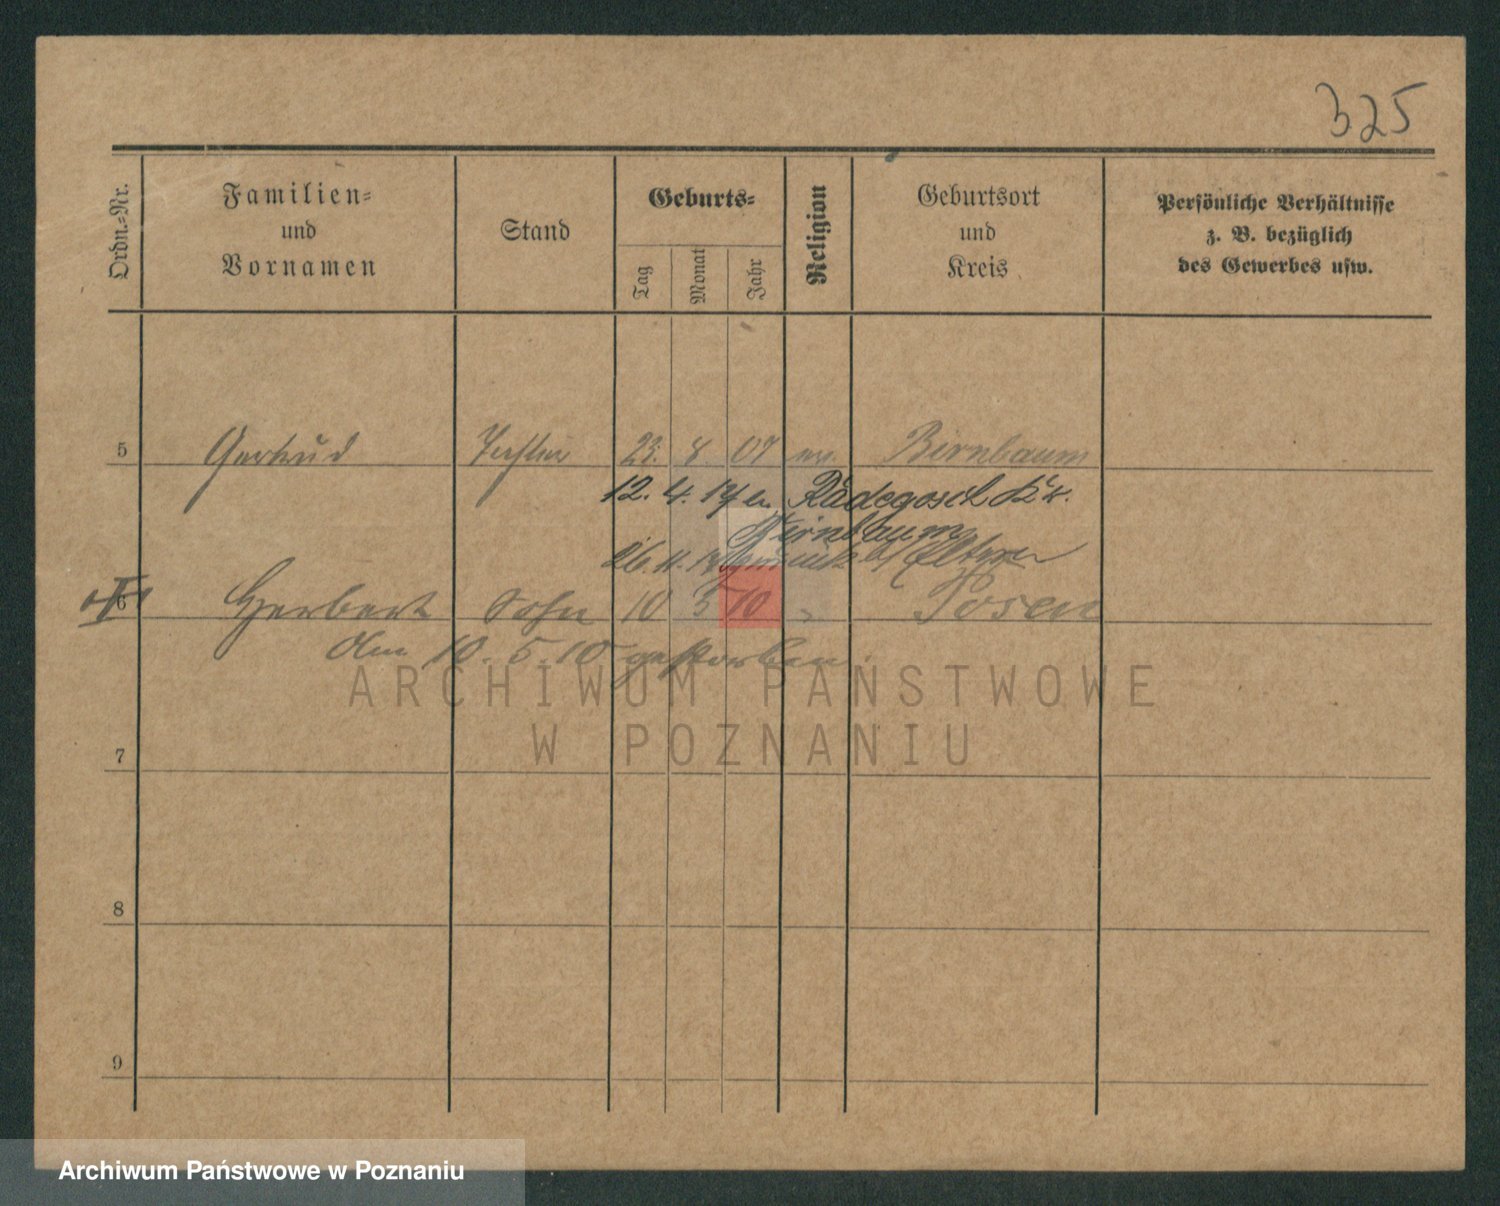 325
Ordn.-Nr.
Familien-
und
Vornamen
Stand
Geburts-
Tag
Monat
Jahr
Religion
Geburtsort
und
Kreis
Persönliche Verhältnisse
z. B. bezüglich
des Gewerbes usw.
5 Gertrud Tochter 23. 8. 07 ev. Birnbaum
12. 4. 17 n. Radegosch Kr.
Birnbaum
26. 11. 17 zurück b/ Eltern
6 Herbert Sohn 10 5 10 " Posen
Am 10. 5 10 gestorben.
7
8
9
ARCHIWUM PAŃSTWOWE
W POZNANIU
Archiwum Państwowe w Poznaniu